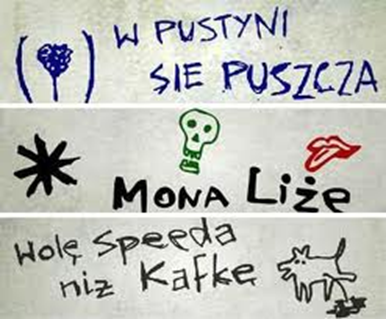 W PUSTYNI
SIE PUSZCZA
MONA Liże
Wolę Speeda
niż Kafkę